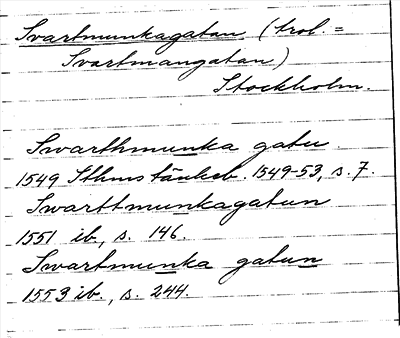 Svartmunkagatan (trol. =
Svartmangatan)
Stockholm.
Swarthmunka gatu.
1549 Sthms tänkeb. 1549-53, s. 7.
Swarttmunkagatun
1551 ib., s. 146.
Swartmunka gatun
1553 ib., s. 244.